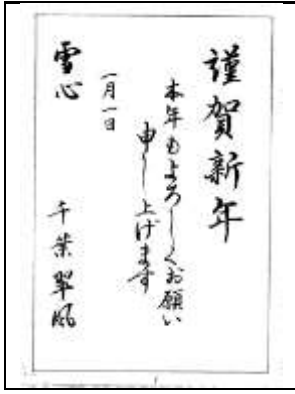 謹賀新年
本年もよろしくお願い
申し上げます
一月一日
雪心
千葉翠風